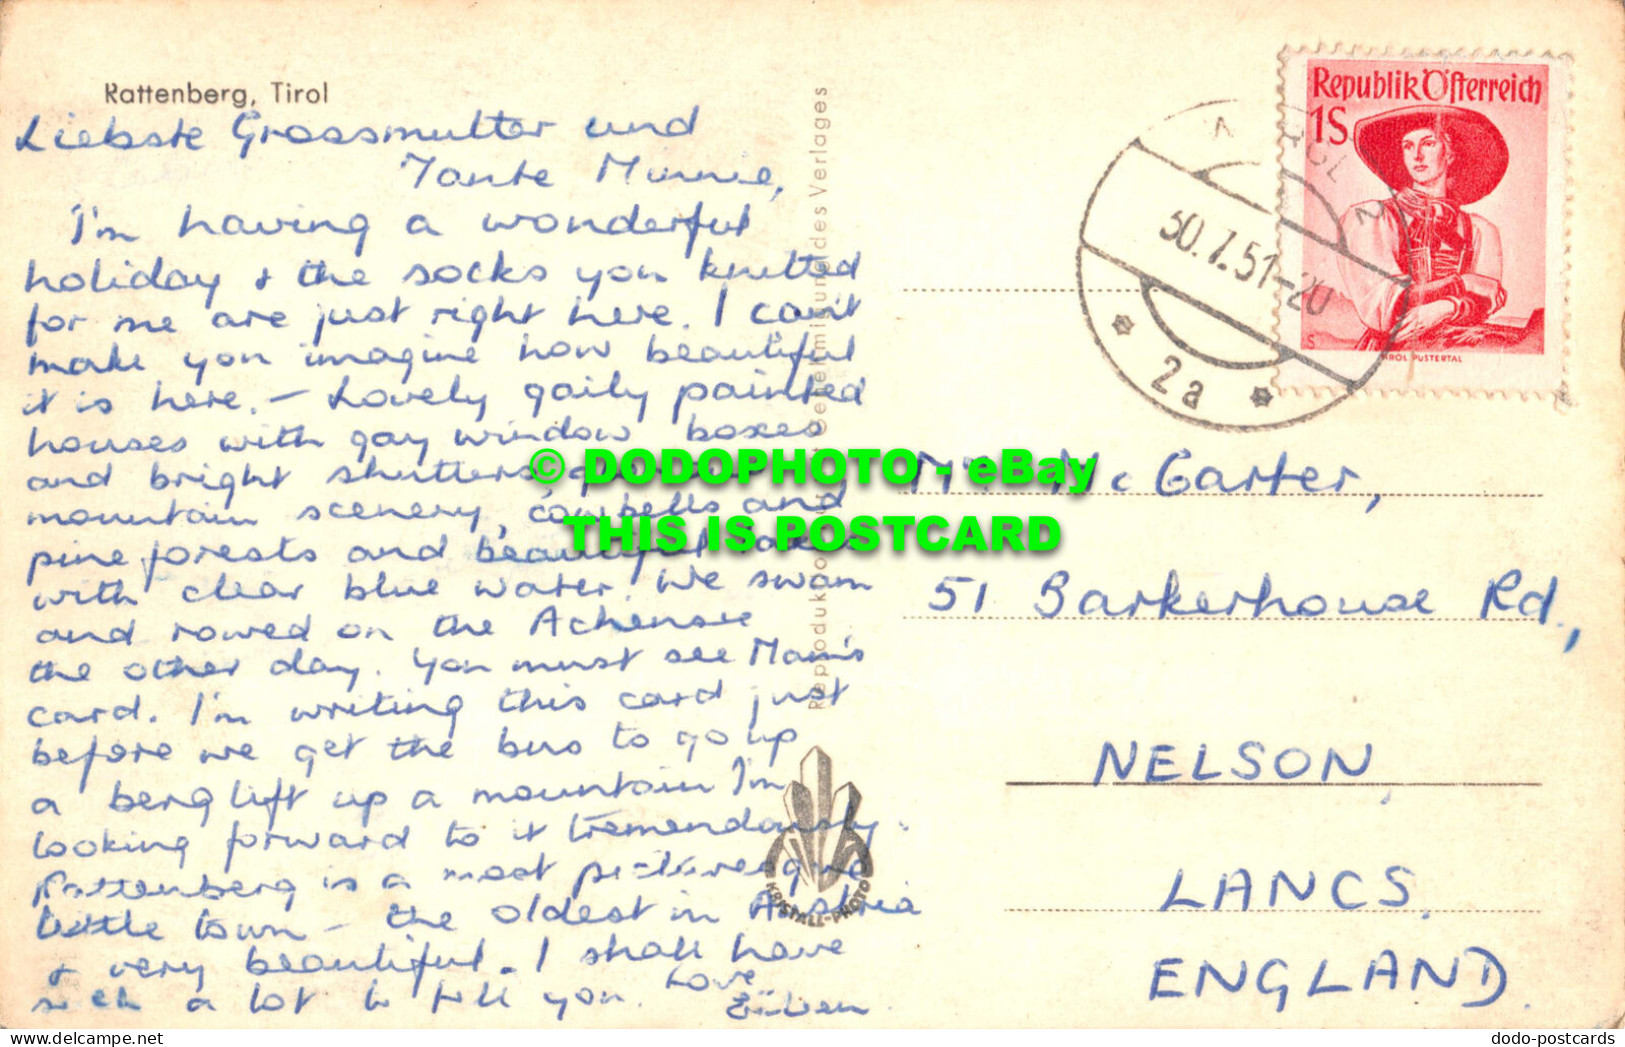 Rattenberg, Tirol
Liebste Grossmutter und
Tante Minnie,
I'm having a wonderful
holiday & the socks you knitted
for me are just right here. I can't
make you imagine how beautiful
it is here. – Lovely gaily painted
houses with gay window boxes
and bright shutters,
mountain scenery, cowbells and
pine forests and beautiful lakes
with clear blue water. We swam
and rowed on the Achensee
the other day. You must see Mam's
card. I'm writing this card just
before we get the bus to go up
a berg lift up a mountain I'm
looking forward to it tremendously.
Rattenberg is a most picturesque
little town – the oldest in Austria
& very beautiful. I shall have
such a lot to tell you. Love
Reproduktion Genehmigung des Verlages
KRISTALL-PHOTO
Republik Österreich
1S
TIROL PUSTERTAL
30.7.51-20
2a
Mc Carter,
51 Barkerhouse Rd.,
NELSON,
LANCS,
ENGLAND.
© DODOPHOTO - eBay
THIS IS POSTCARD
www.delcampe.net
dodo-postcards